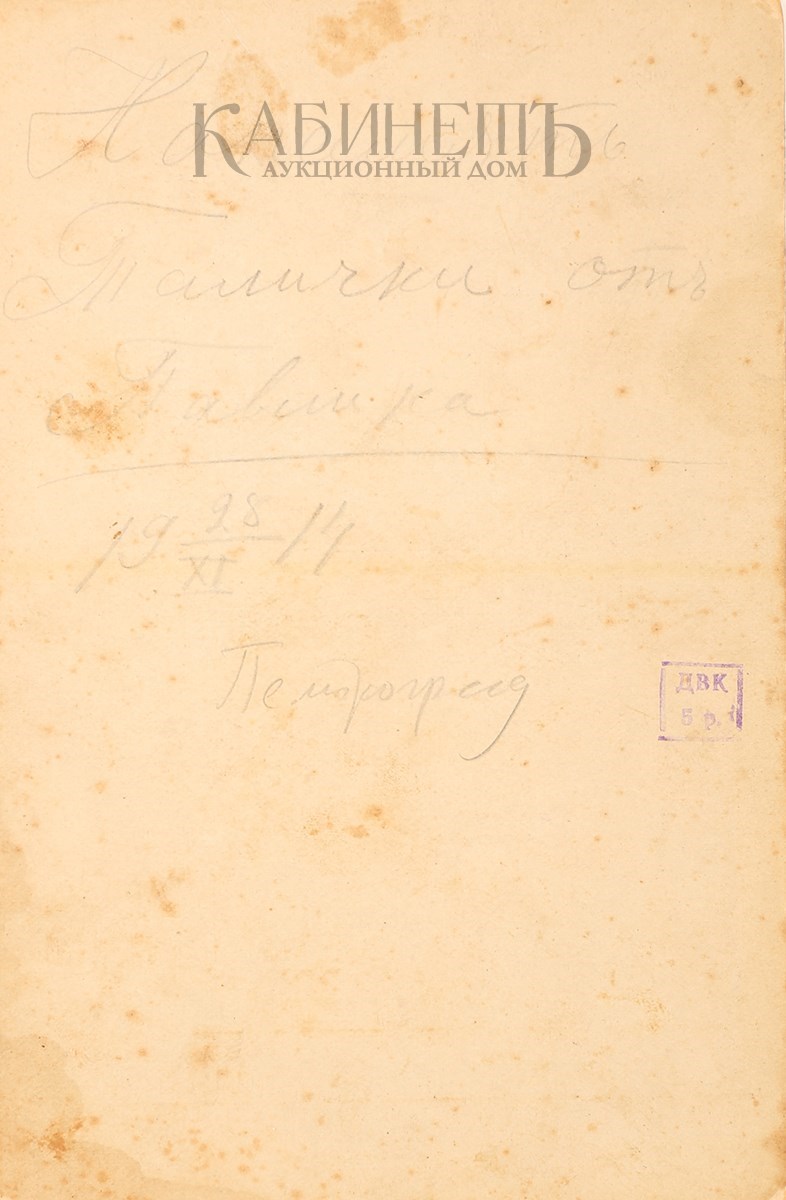 КАБИНЕТЪ
АУКЦИОННЫЙ ДОМ
На память
Талички отъ
Павлика
19 28/XI 14
Петроград
ДВК
5 р.